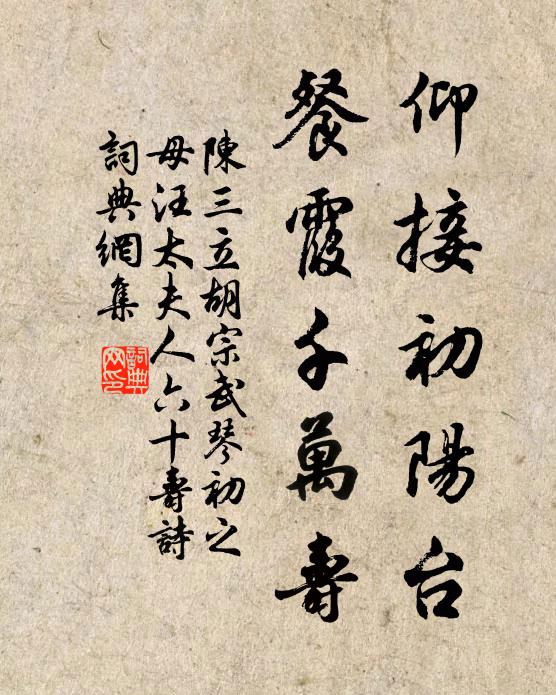 仰接初陽台
餐霞千萬壽
陳三立胡宗武琴初之
母汪太夫人六十壽詩
詞典網集
詞典
网印